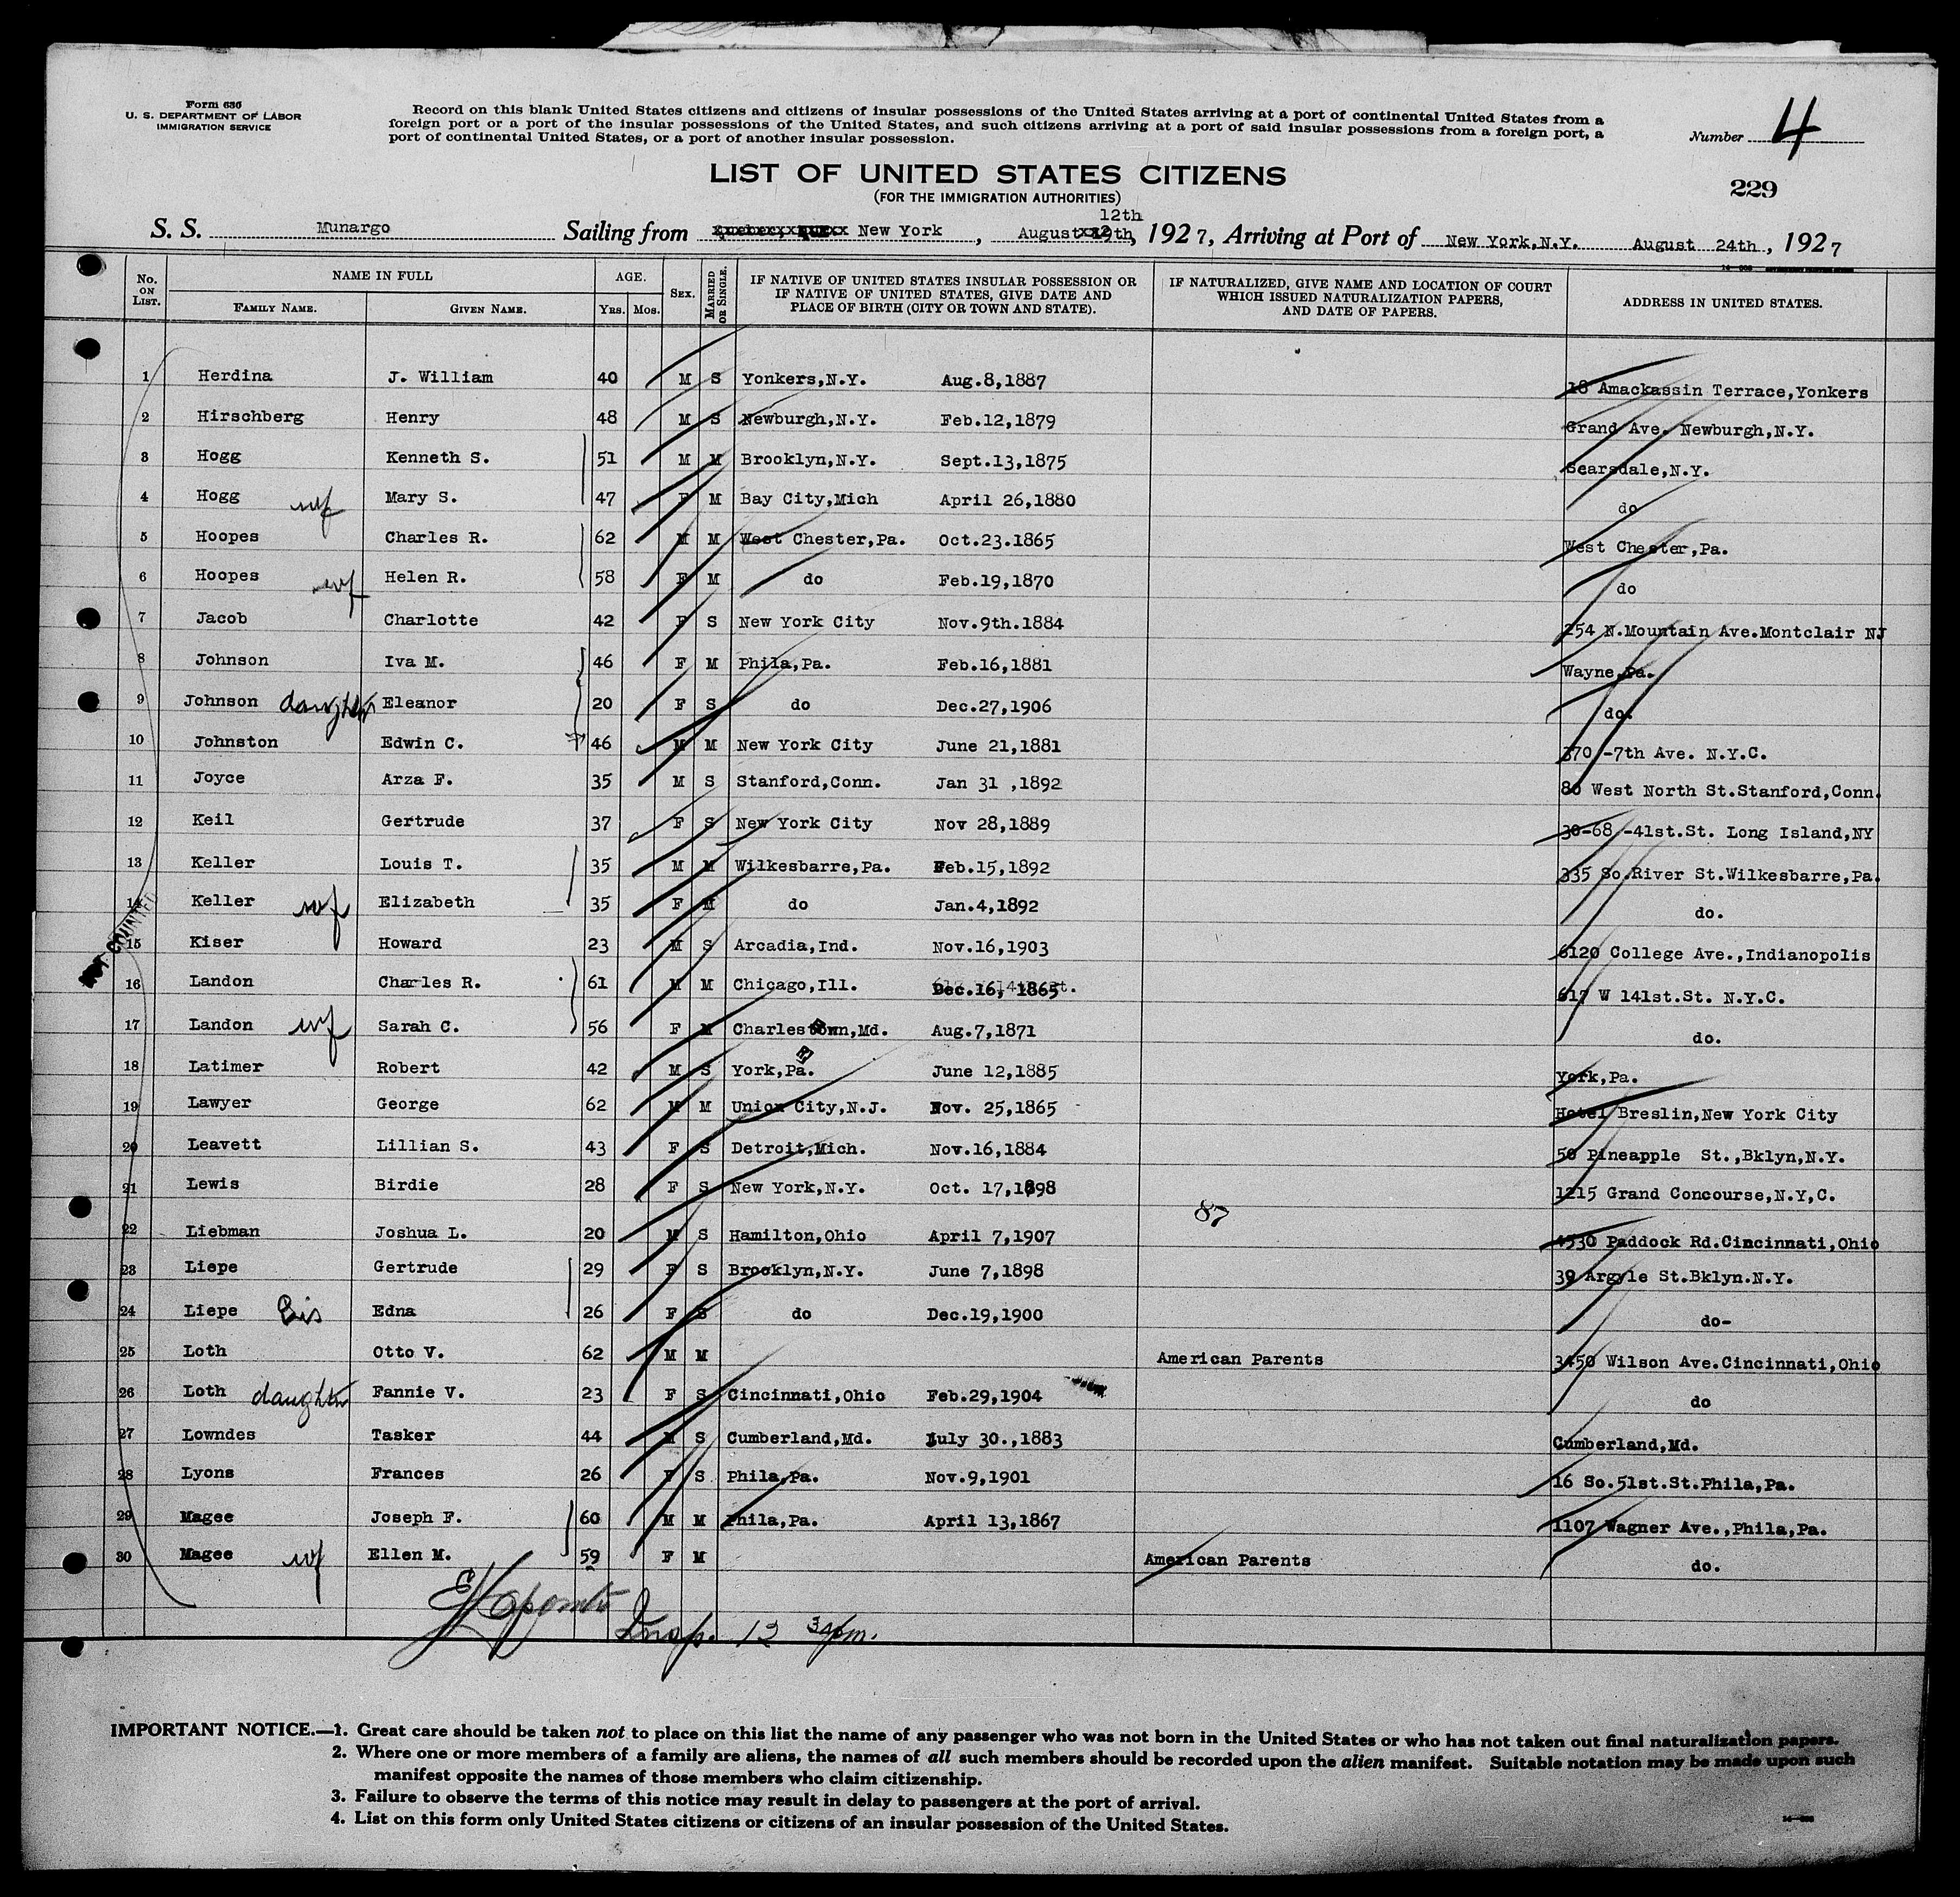 Form 636
U. S. DEPARTMENT OF LABOR
IMMIGRATION SERVICE
Record on this blank United States citizens and citizens of insular possessions of the United States arriving at a port of continental United States from a
foreign port or a port of the insular possessions of the United States, and such citizens arriving at a port of said insular possessions from a foreign port, a
port of continental United States, or a port of another insular possession.
Number 4
LIST OF UNITED STATES CITIZENS
(FOR THE IMMIGRATION AUTHORITIES)
229
12th
S. S. Munargo Sailing from New York, August, 1927, Arriving at Port of New York,N.Y. August 24th, 1927
No. ON LIST. NAME IN FULL FAMILY NAME. GIVEN NAME. AGE. YRS. MOS. SEX. MARRIED OR SINGLE. IF NATIVE OF UNITED STATES INSULAR POSSESSION OR IF NATIVE OF UNITED STATES, GIVE DATE AND PLACE OF BIRTH (CITY OR TOWN AND STATE). IF NATURALIZED, GIVE NAME AND LOCATION OF COURT WHICH ISSUED NATURALIZATION PAPERS, AND DATE OF PAPERS. ADDRESS IN UNITED STATES.
1 Herdina J. William 40 M S Yonkers,N.Y. Aug.8,1887 18 Amackassin Terrace,Yonkers
2 Hirschberg Henry 48 M S Newburgh,N.Y. Feb.12,1879 Grand Ave. Newburgh,N.Y.
3 Hogg Kenneth S. 51 M M Brooklyn,N.Y. Sept.13,1875 Scarsdale,N.Y.
4 Hogg wf Mary S. 47 F M Bay City,Mich April 26,1880 do
5 Hoopes Charles R. 62 M M West Chester,Pa. Oct.23.1865 West Chester,Pa.
6 Hoopes wf Helen R. 58 F M do Feb.19,1870 do
7 Jacob Charlotte 42 F S New York City Nov.9th.1884 254 N.Mountain Ave.Montclair NJ
8 Johnson Iva M. 46 F M Phila,Pa. Feb.16,1881 Wayne,Pa.
9 Johnson daughter Eleanor 20 F S do Dec.27,1906 do.
10 Johnston Edwin C. 46 M M New York City June 21,1881 370 -7th Ave. N.Y.C.
11 Joyce Arza F. 35 M S Stanford,Conn. Jan 31 ,1892 80 West North St.Stanford,Conn.
12 Keil Gertrude 37 F S New York City Nov 28,1889 30-68 -41st.St. Long Island,NY
13 Keller Louis T. 35 M M Wilkesbarre,Pa. Feb.15,1892 335 So.River St.Wilkesbarre,Pa.
14 Keller wf Elizabeth 35 F M do Jan.4,1892 do.
NOT COUNTED
15 Kiser Howard 23 M S Arcadia,Ind. Nov.16,1903 6120 College Ave.,Indianopolis
16 Landon Charles R. 61 M M Chicago,Ill. Dec.16, 1865 617 W 141st.St. N.Y.C.
17 Landon wf Sarah C. 56 F M Charlestown,Md. Aug.7,1871 do.
18 Latimer Robert 42 M S York,Pa. June 12,1885 York,Pa.
19 Lawyer George 62 M M Union City,N.J. Nov. 25,1865 Hotel Breslin,New York City
20 Leavett Lillian S. 43 F S Detroit,Mich. Nov.16,1884 50 Pineapple St.,Bklyn,N.Y.
21 Lewis Birdie 28 F S New York,N.Y. Oct. 17,1898 1215 Grand Concourse,N.Y,C.
87
22 Liebman Joshua L. 20 M S Hamilton,Ohio April 7,1907 4530 Paddock Rd.Cincinnati,Ohio
23 Liepe Gertrude 29 F S Brooklyn,N.Y. June 7,1898 39 Argyle St.Bklyn.N.Y.
24 Liepe Sis Edna 26 F S do Dec.19,1900 do-
25 Loth Otto V. 62 M M American Parents 3450 Wilson Ave.Cincinnati,Ohio
26 Loth daughter Fannie V. 23 F S Cincinnati,Ohio Feb.29,1904 do
27 Lowndes Tasker 44 M S Cumberland,Md. July 30.,1883 Cumberland,Md.
28 Lyons Frances 26 F S Phila,Pa. Nov.9,1901 16 So.51st.St.Phila,Pa.
29 Magee Joseph F. 60 M M Phila,Pa. April 13,1867 1107 Wagner Ave.,Phila,Pa.
30 Magee wf Ellen M. 59 F M American Parents do.
Insp. 12
IMPORTANT NOTICE.—1. Great care should be taken not to place on this list the name of any passenger who was not born in the United States or who has not taken out final naturalization papers.
2. Where one or more members of a family are aliens, the names of all such members should be recorded upon the alien manifest. Suitable notation may be made upon such
manifest opposite the names of those members who claim citizenship.
3. Failure to observe the terms of this notice may result in delay to passengers at the port of arrival.
4. List on this form only United States citizens or citizens of an insular possession of the United States.